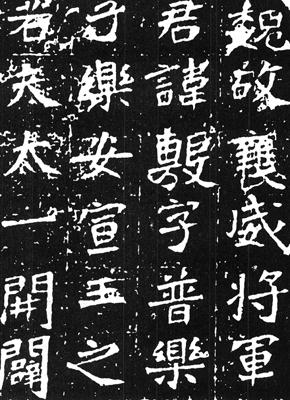 魏故襄威將軍
君諱字普樂
子樂安宣王之
若夫太一開闢